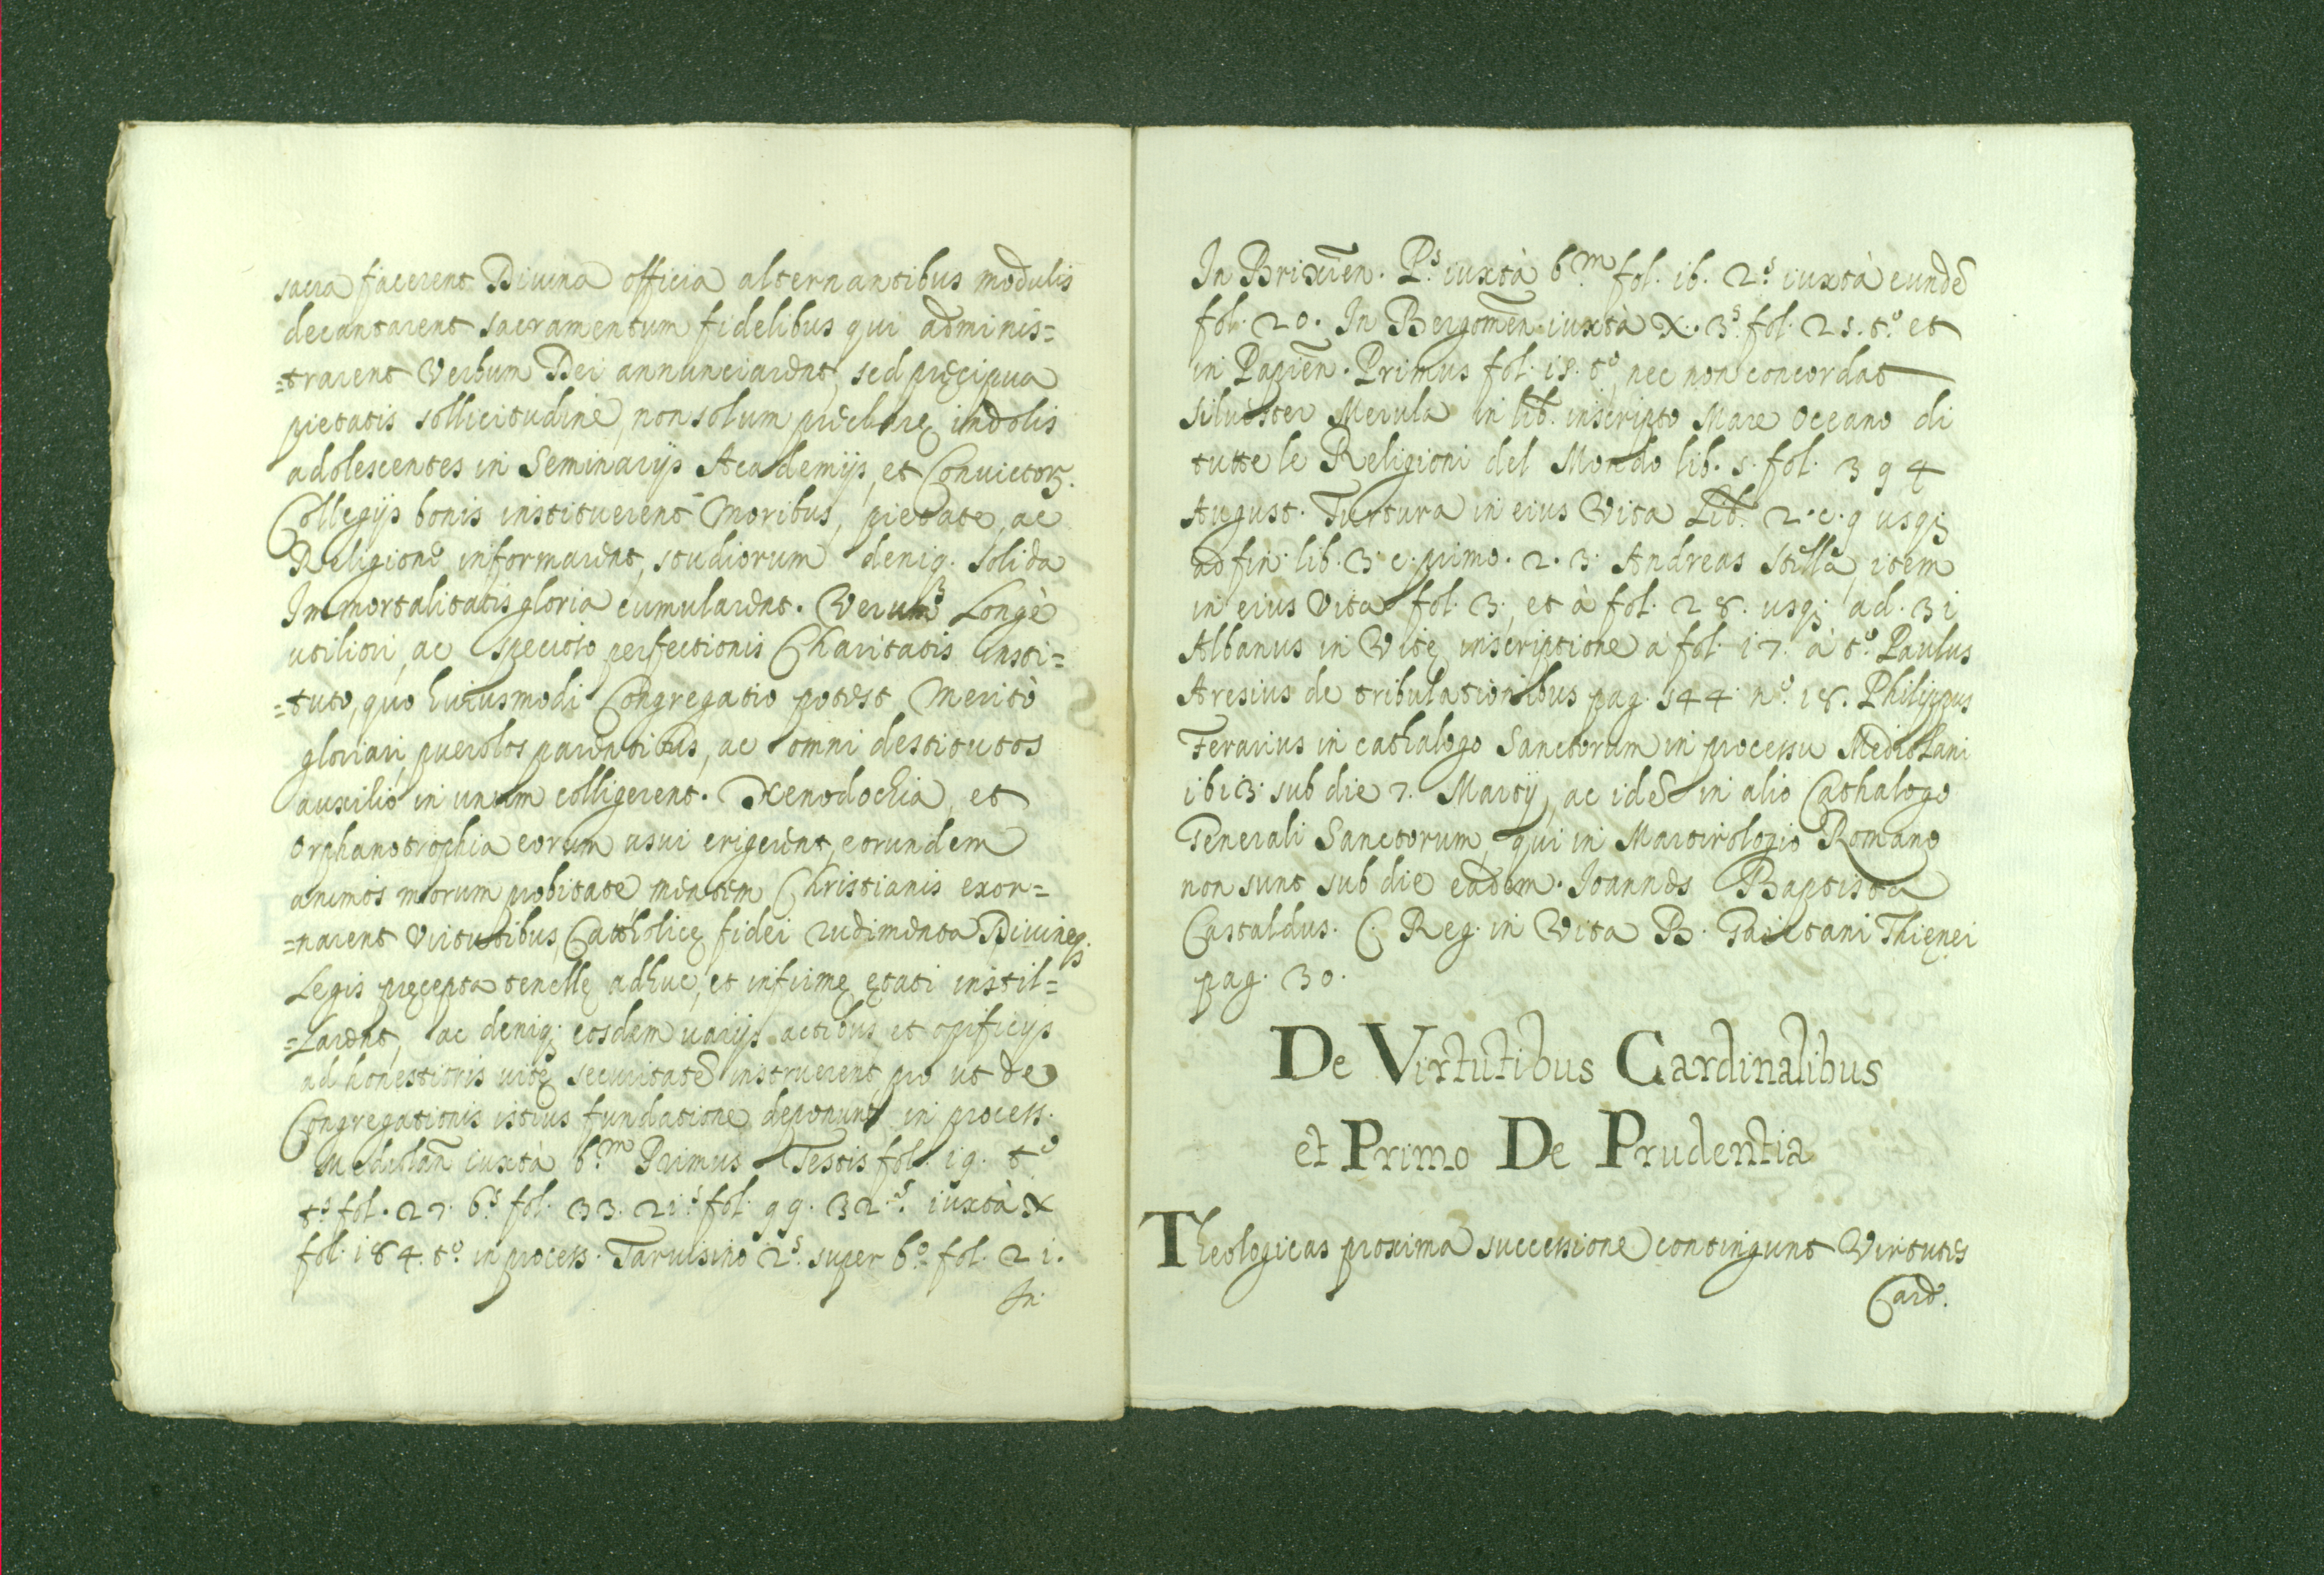 sacra facerent Divina officia alternantibus modulis
decantarent sacramentum fidelibus qui adminis=
=trarent Verbum Dei annunciarent, sed pręcipua
pietatis sollicitudine, non solum pręclarę indolis
adolescentes in Seminarijs Academijs, et Convictorz.
Collegijs bonis instituerent Moribus, pietate, ac
Religione informarent, studiorum deniq. solida
Immortalitatis gloria cumularent. Verum Longè
utiliori, ac specioso perfectionis Charitatis insti=
=tuto, quo huiusmodi Congregatio potest Meritò
gloriari, puerolos parentibus, ac omni destitutos
auxilio in unum colligerent. Xenodochia, et
orphanotrophia eorum usui erigerent, eorundem
animos morum probitate mentem Christianis exor=
=narent Virtutibus, Catholicę fidei rudimenta Divineq.
Legis pręcepta tenellę adhuc, et infirmę ętati instil=
=larent, ac deniq; eosdem varijs actibus et opificijs
ad honestioris vitę securitatē instruerent pro ut de
Congregationis istius fundatione deponunt in process.
Mediolan̄ iuxtà 6.m Primus Testis fol. 19. t.o
t.s fol. 27. 6.s fol. 33. 21.s fol. 99. 32.s iuxtà X
fol. 184. t.o in process. Tarvisino 2.s super 6.o fol. 21.
In
In Brixien̄. P.s iuxtà 6.m fol. 16. 2.s iuxtà eundē
fol. 20. In Bergomen̄ iuxtà X. 3.s fol. 25. t.o et
in Papien̄. Primus fol. 18. t.o nec non concordat
Silvester Merula in lib. inscripto Mare Oceano di
tutte le Religioni del Mondo lib. 5. fol. 394
August. Turtura in eius Vita Lib. 2. c. 9 usq;
ad fin. lib. 3. c. primo. 2. 3. Andreas Stella, item
in eius Vita fol. 3; et à fol. 28. usq; ad. 31
Albanus in Vitę inscriptione a fol. 17. à t.o Paulus
Aresius de tribulationibus pag. 544 n.o 18. Philippus
Ferarius in cathalogo Sanctorum in processu Mediolani
ibi 3. sub die 7. Martij, ac idē in alio Cathalogo
Generali Sanctorum, qui in Martirologio Romano
non sunt sub die eadem. Joannes Baptista
Castaldus. C. Reg. in Vita B. Gaietani Thienei
pag. 30.
De Virtutibus Cardinalibus
et Primo De Prudentia
Theologicas proxima successione contingunt Virtutes
Card.